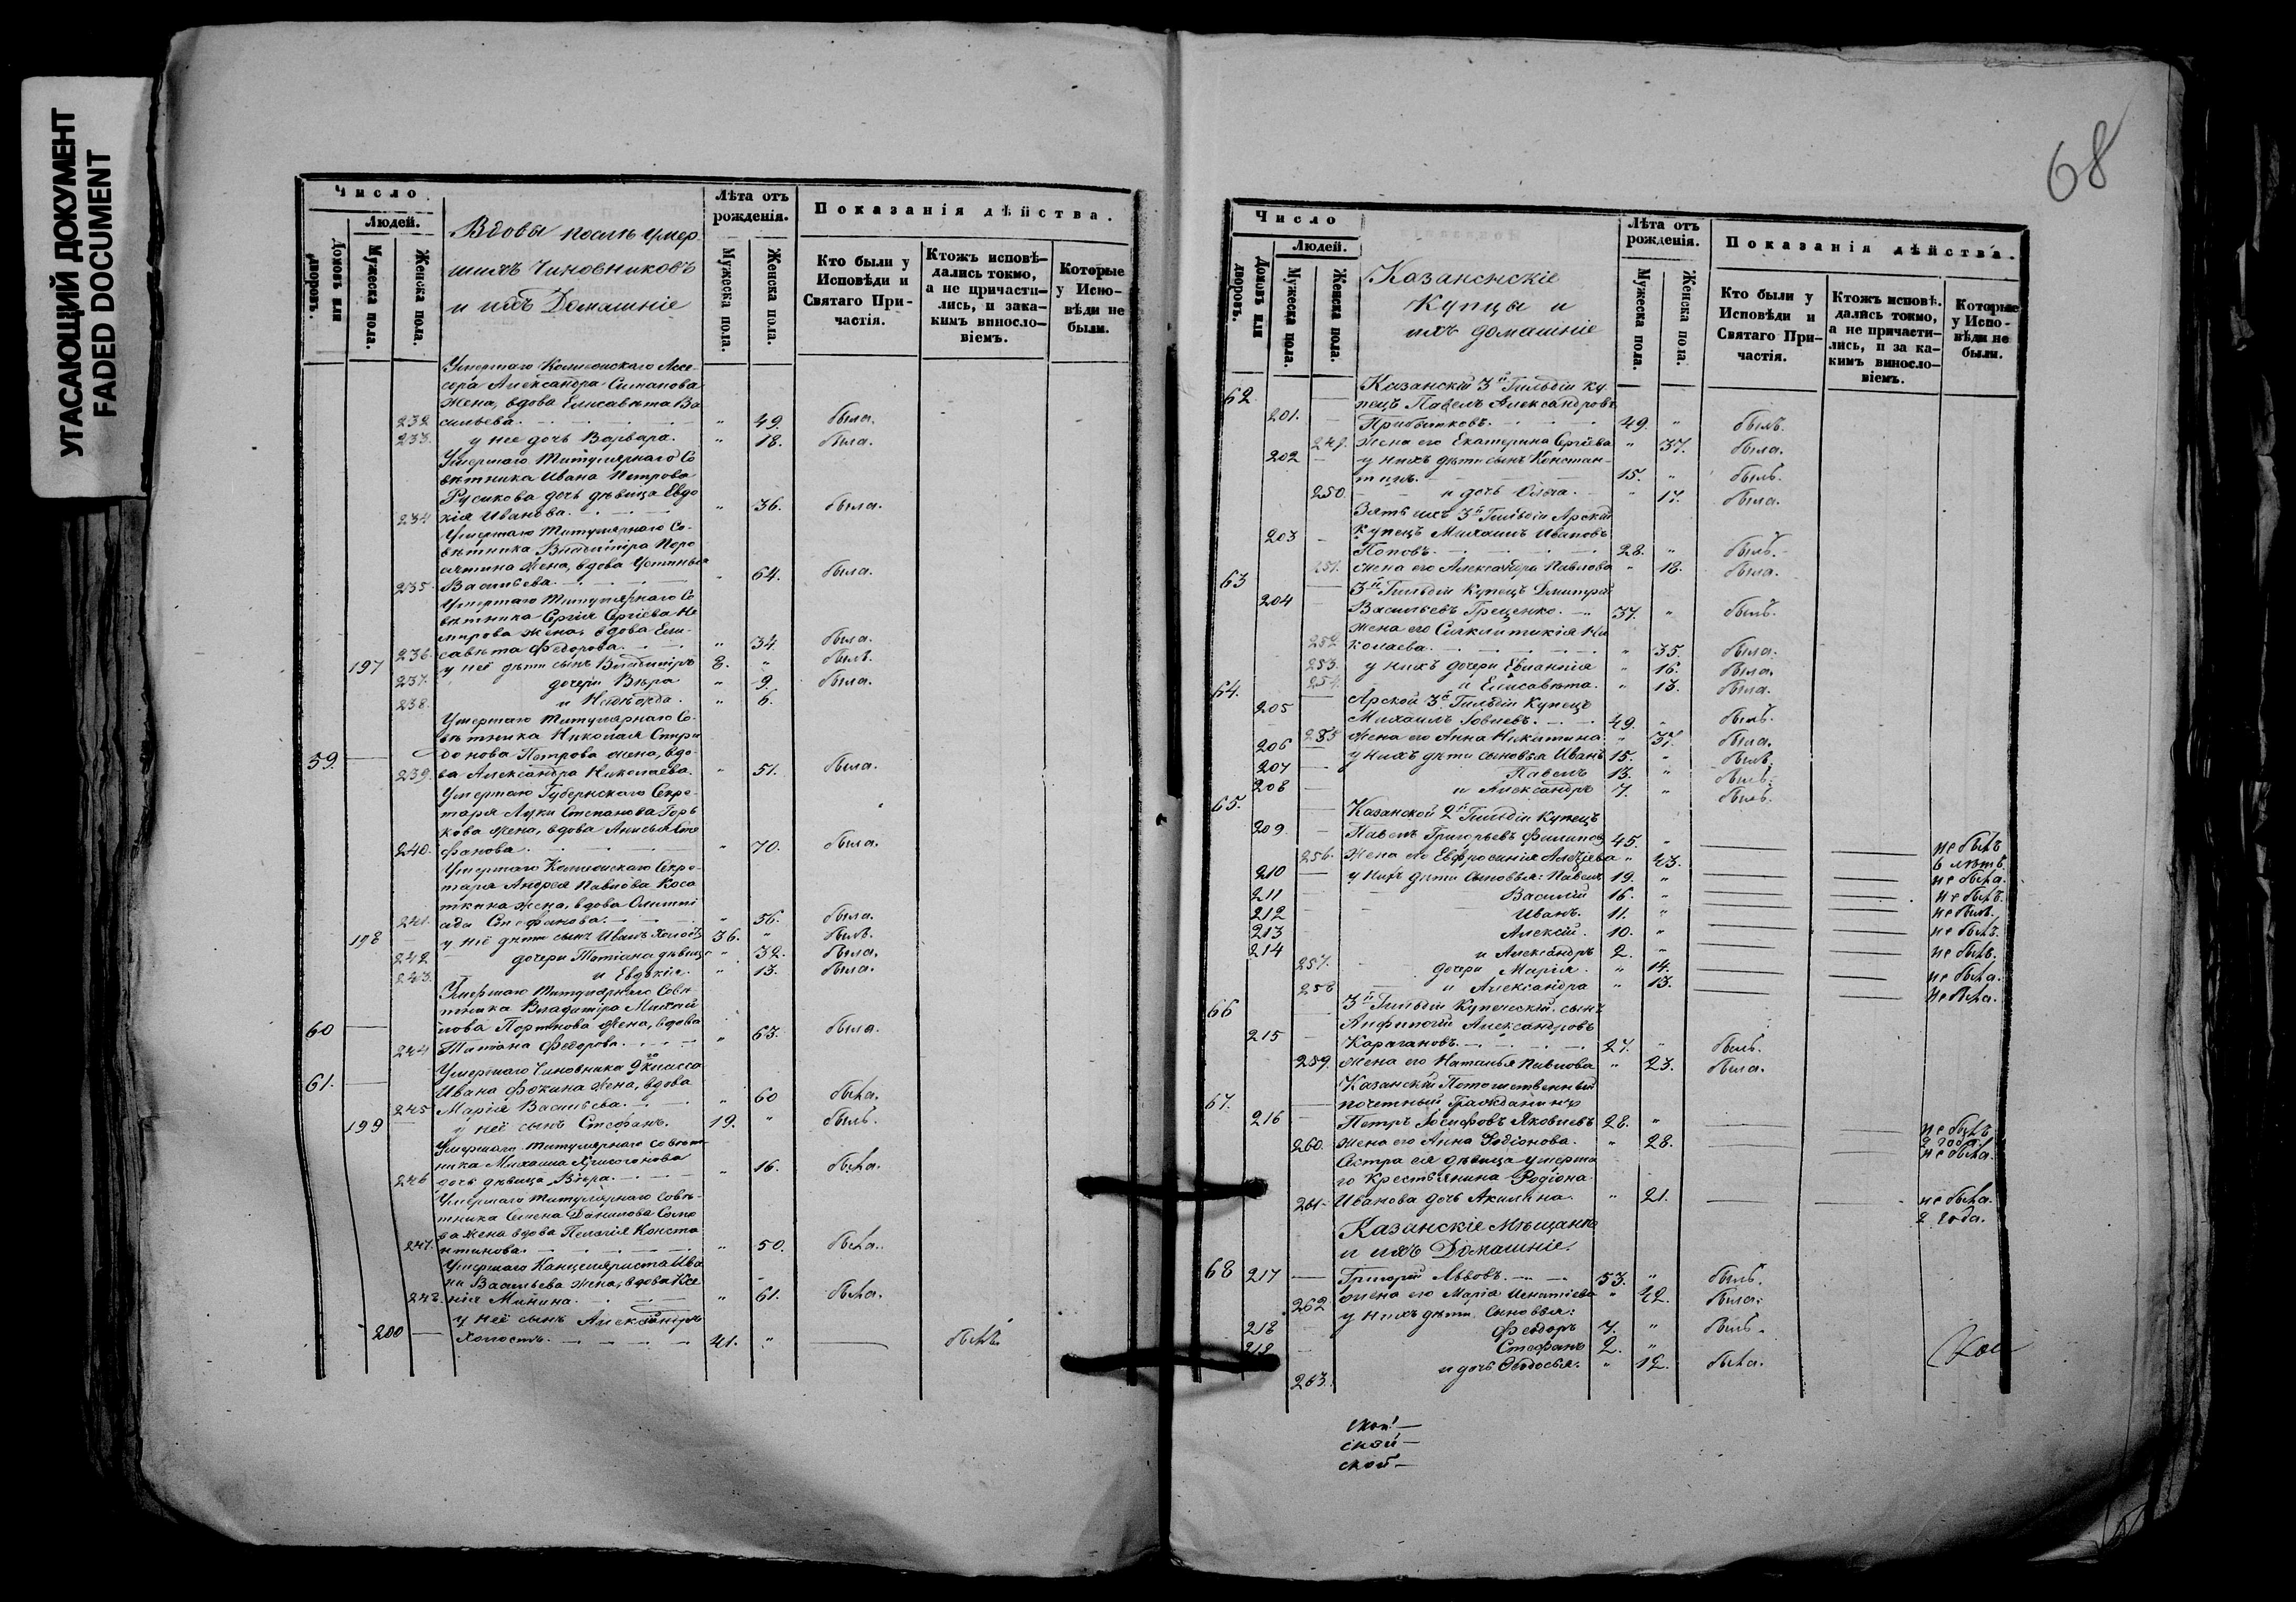 УГАСАЮЩИЙ ДОКУМЕНТ
FADED DOCUMENT
Число.
Людей.
Домовъ или дворовъ.
Мужеска пола.
Женска пола.
Вдовы послѣ умер
шихъ Чиновниковъ
и ихъ Домашніе
Лѣта отъ рожденія.
Мужеска пола.
Женска пола.
Показанія дѣйства.
Кто были у Исповѣди и Святаго Причастія.
Ктожъ исповѣдались токмо, а не причастились, и закакимъ винословіемъ.
Которые у Исповѣди не были.
Умершаго Коллежскаго Ассе-
сора Александра Симанова
жена, вдова Елисавета Ва
232 сильева. " 49. была.
233. у нее дочь Варвара. " 18. была.
Умершаго Титулярнаго Со
вѣтника Ивана Петрова
Русикова дочь дѣвица Евдо
234 кія Иванова. " 36. была.
Умершаго Титулярнаго Со-
вѣтника Владиміра Поро
жена, вдова Устинья
235. Васильева. " 64. была.
Умершаго Титулярнаго Со
вѣтника Сергія Сергіева Не
мирова жена, вдова Ели-
236. савѣта Федорова. " 34. была.
197 у неё дѣти сынъ Владиміръ 8. " былъ.
237. дочери Вѣра " 9. была.
238. и Надежда. " 6.
Умершаго Титулярнаго Со-
вѣтника Николая Спири
59. донова Петрова жена, вдо-
239. ва Александра Николаева. " 51. была.
Умершаго Губернскаго Секре-
таря Луки Степанова Горь
кова жена, вдова Анисья Сте
240. фанова. " 70. была.
Умершаго Коллежскаго Секре-
таря Андрея Павлова Коса
ткина жена, вдова Олимпі
241. ада Стефанова. " 56. была.
198 у неё дѣти сынъ Иванъ Холостъ 36. " былъ.
242. дочери Татіана дѣвица " 32. была.
243. и Евдокія. " 13. была.
Умершаго Титулярнаго Совѣ
тника Владиміра Михай
60 лова Портнова жена, вдова
244 Татіана Федорова. " 63. была.
Умершаго Чиновника 9го класса
61. Ивана Фокина жена, вдова
245 Марія Васильева. " 60 была.
199 у неё сынъ Стефанъ. 19. " былъ.
Умершаго Титулярнаго Совѣт
ника Михаила Хрисогонова
246 дочь дѣвица Вѣра. " 16. была.
Умершаго Титулярнаго Совѣ-
тника Семена Данилова
ва жена вдова Пелагія Конста
247. нтинова. " 50. была.
Умершаго Канцеляриста Ива
на Васильева жена, вдова Ксе
248. нія Минина. " 61. была.
у неё сынъ Александръ
200 Холостъ. 41. " былъ.
68
Число
Людей.
Домовъ или дворовъ.
Мужеска пола.
Женска пола.
Казанскіе
Купцы и
ихъ домашніе
Лѣта отъ рожденія.
Мужеска пола.
Женска пола.
Показанія дѣйства.
Кто были у Исповѣди и Святаго Причастія.
Ктожъ исповѣдались токмо, а не причастились, и за какимъ винословіемъ.
Которые у Исповѣди не были.
62 Казанскій 3й Гильдіи Ку
пецъ Павелъ Александровъ
201. Прибытковъ. 49. " былъ.
249. Жена его Екатерина Сергіева " 37. была.
202 у нихъ дѣти сынъ Констан-
тинъ. 15. " былъ.
250. и дочь Ольга. " 17. была.
Зять ихъ 3й Гильдіи Арскій
203 Купецъ Михаилъ Ивановъ
Поповъ. 28. " былъ.
251. Жена его Александра Павлова " 18. была.
63 3й Гильдіи Купецъ Дмитрій
204 Васильевъ Грещенко. 37. " былъ.
Жена его Синклитикія Ни
252 колаева. " 35. была.
253. у нихъ дочери Евлампія " 16. была.
254. и Елисавѣта. " 13. была.
64. Арской 3й Гильдіи Купецъ
205 Михаилъ Іовлевъ. 49. " былъ.
255 Жена его Анна Никитина. " 37. была.
206 у нихъ дѣти сыновья Иванъ 15. " былъ.
207 Павелъ 13. " былъ.
208 и Александръ 7. " былъ.
65. Казанской 2й Гильдіи Купецъ
209. Павелъ Григорьевъ Филипов 45. " не былъ
6 лѣтъ
256. Жена его Евфросинія Алексіева " 43. не была.
210 у нихъ дѣти сыновья: Павелъ 19. " не былъ.
211 Василій 16. " не былъ.
212 Иванъ. 11. " не былъ.
213 Алексій. 10. "
214 и Александръ 2. " не былъ.
257. дочери Марія. " 14. не была.
258 и Александра " 13. не была.
66 3й Гильдіи Купеческій сынъ
Анфиногій Александровъ
215 Карагановъ. 27. " былъ.
259. Жена его Наталья Павлова " 23. была.
Казанскій Потомственный
67. почетный Гражданинъ
216 Петръ Іосифовъ Яковлевъ 28. " не былъ
2 года.
260. Жена его Анна Родіонова. " 28. не была.
Сестра ея дѣвица умерша
го Крестьянина Родіона
261. Иванова дочь Акилина. " 21. не была.
2 года.
Казанскіе Мѣщане
и ихъ Домашніе.
68 217 Григорій Львовъ. 53. " былъ.
262 Жена его Марія Игнатіева " 42. была.
у нихъ дѣти сыновья:
218 Феодоръ 7. " былъ.
219 Стефанъ 2. "
263. и дочь Феодосья. " 12. была.
ской
ской
ской